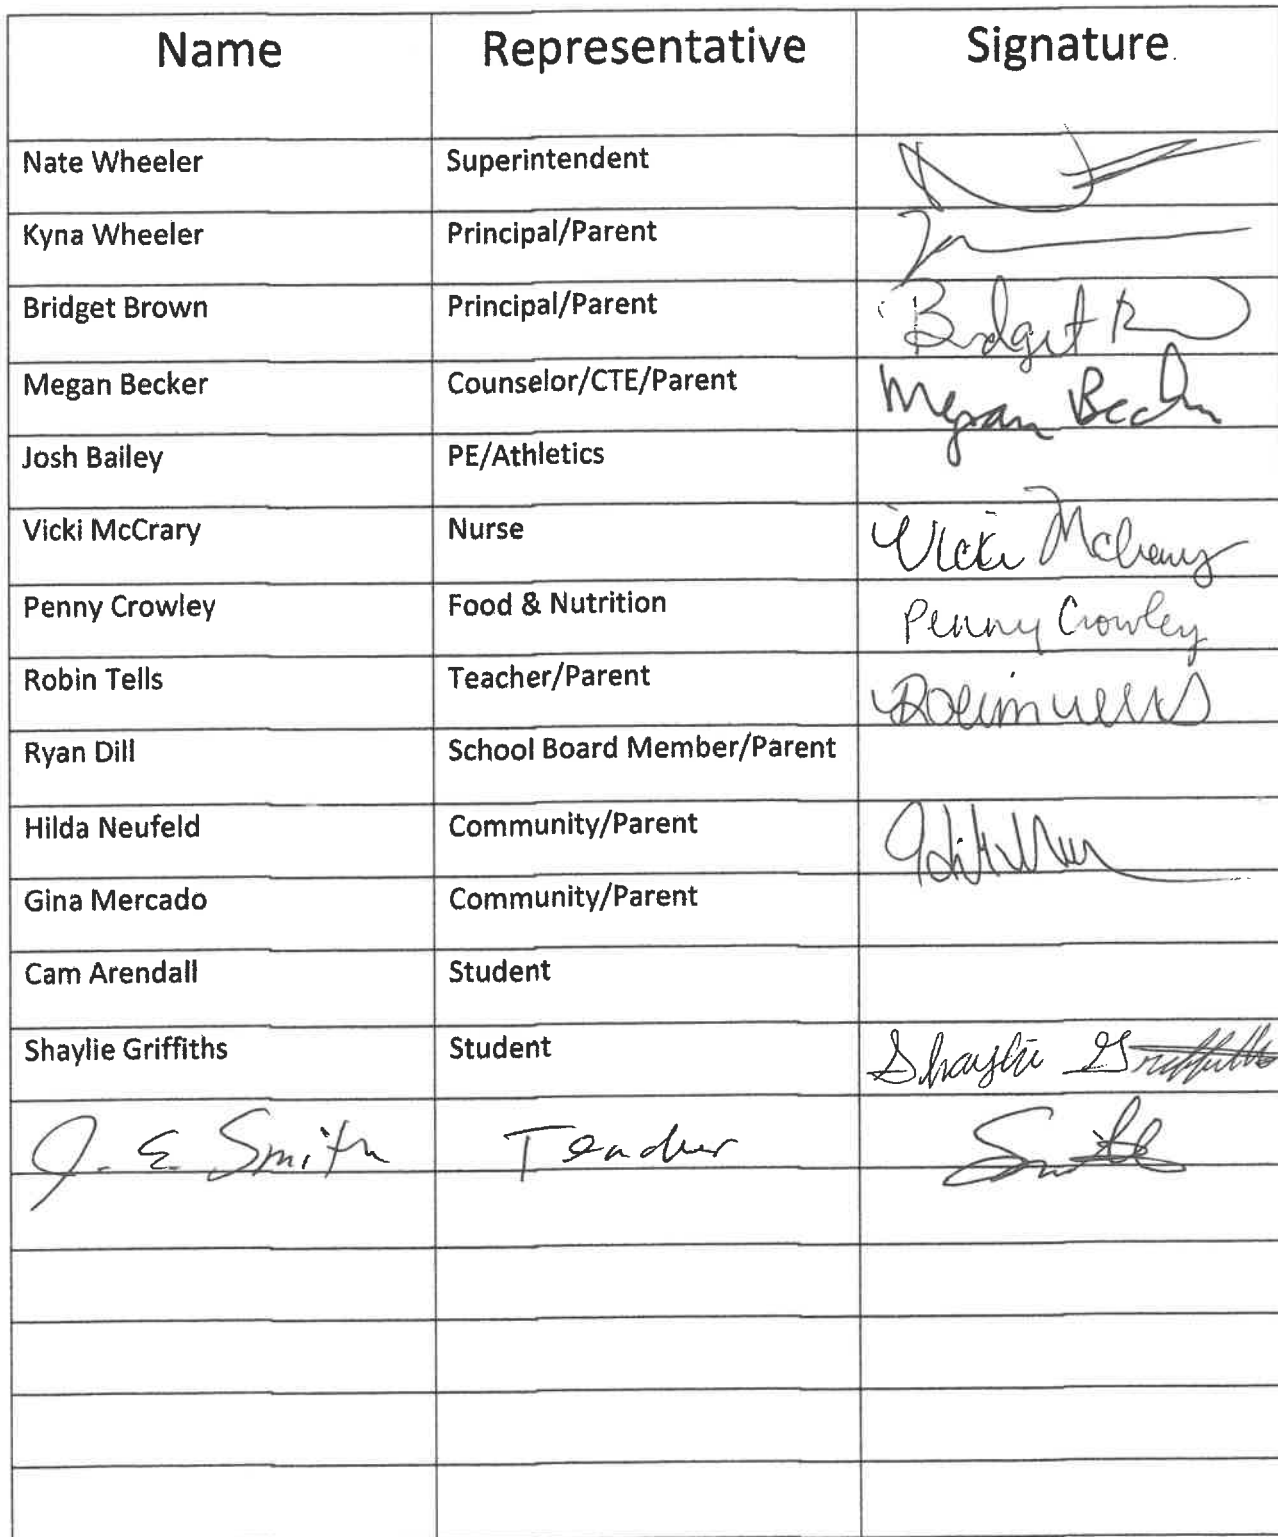 Name Representative Signature
Nate Wheeler Superintendent
Kyna Wheeler Principal/Parent
Bridget Brown Principal/Parent Bridget
Megan Becker Counselor/CTE/Parent Megan Becker
Josh Bailey PE/Athletics
Vicki McCrary Nurse Vicki McCrary
Penny Crowley Food & Nutrition Penny Crowley
Robin Tells Teacher/Parent
Ryan Dill School Board Member/Parent
Hilda Neufeld Community/Parent
Gina Mercado Community/Parent
Cam Arendall Student
Shaylie Griffiths Student Shaylie Griffiths
J. E. Smith Teacher Smith